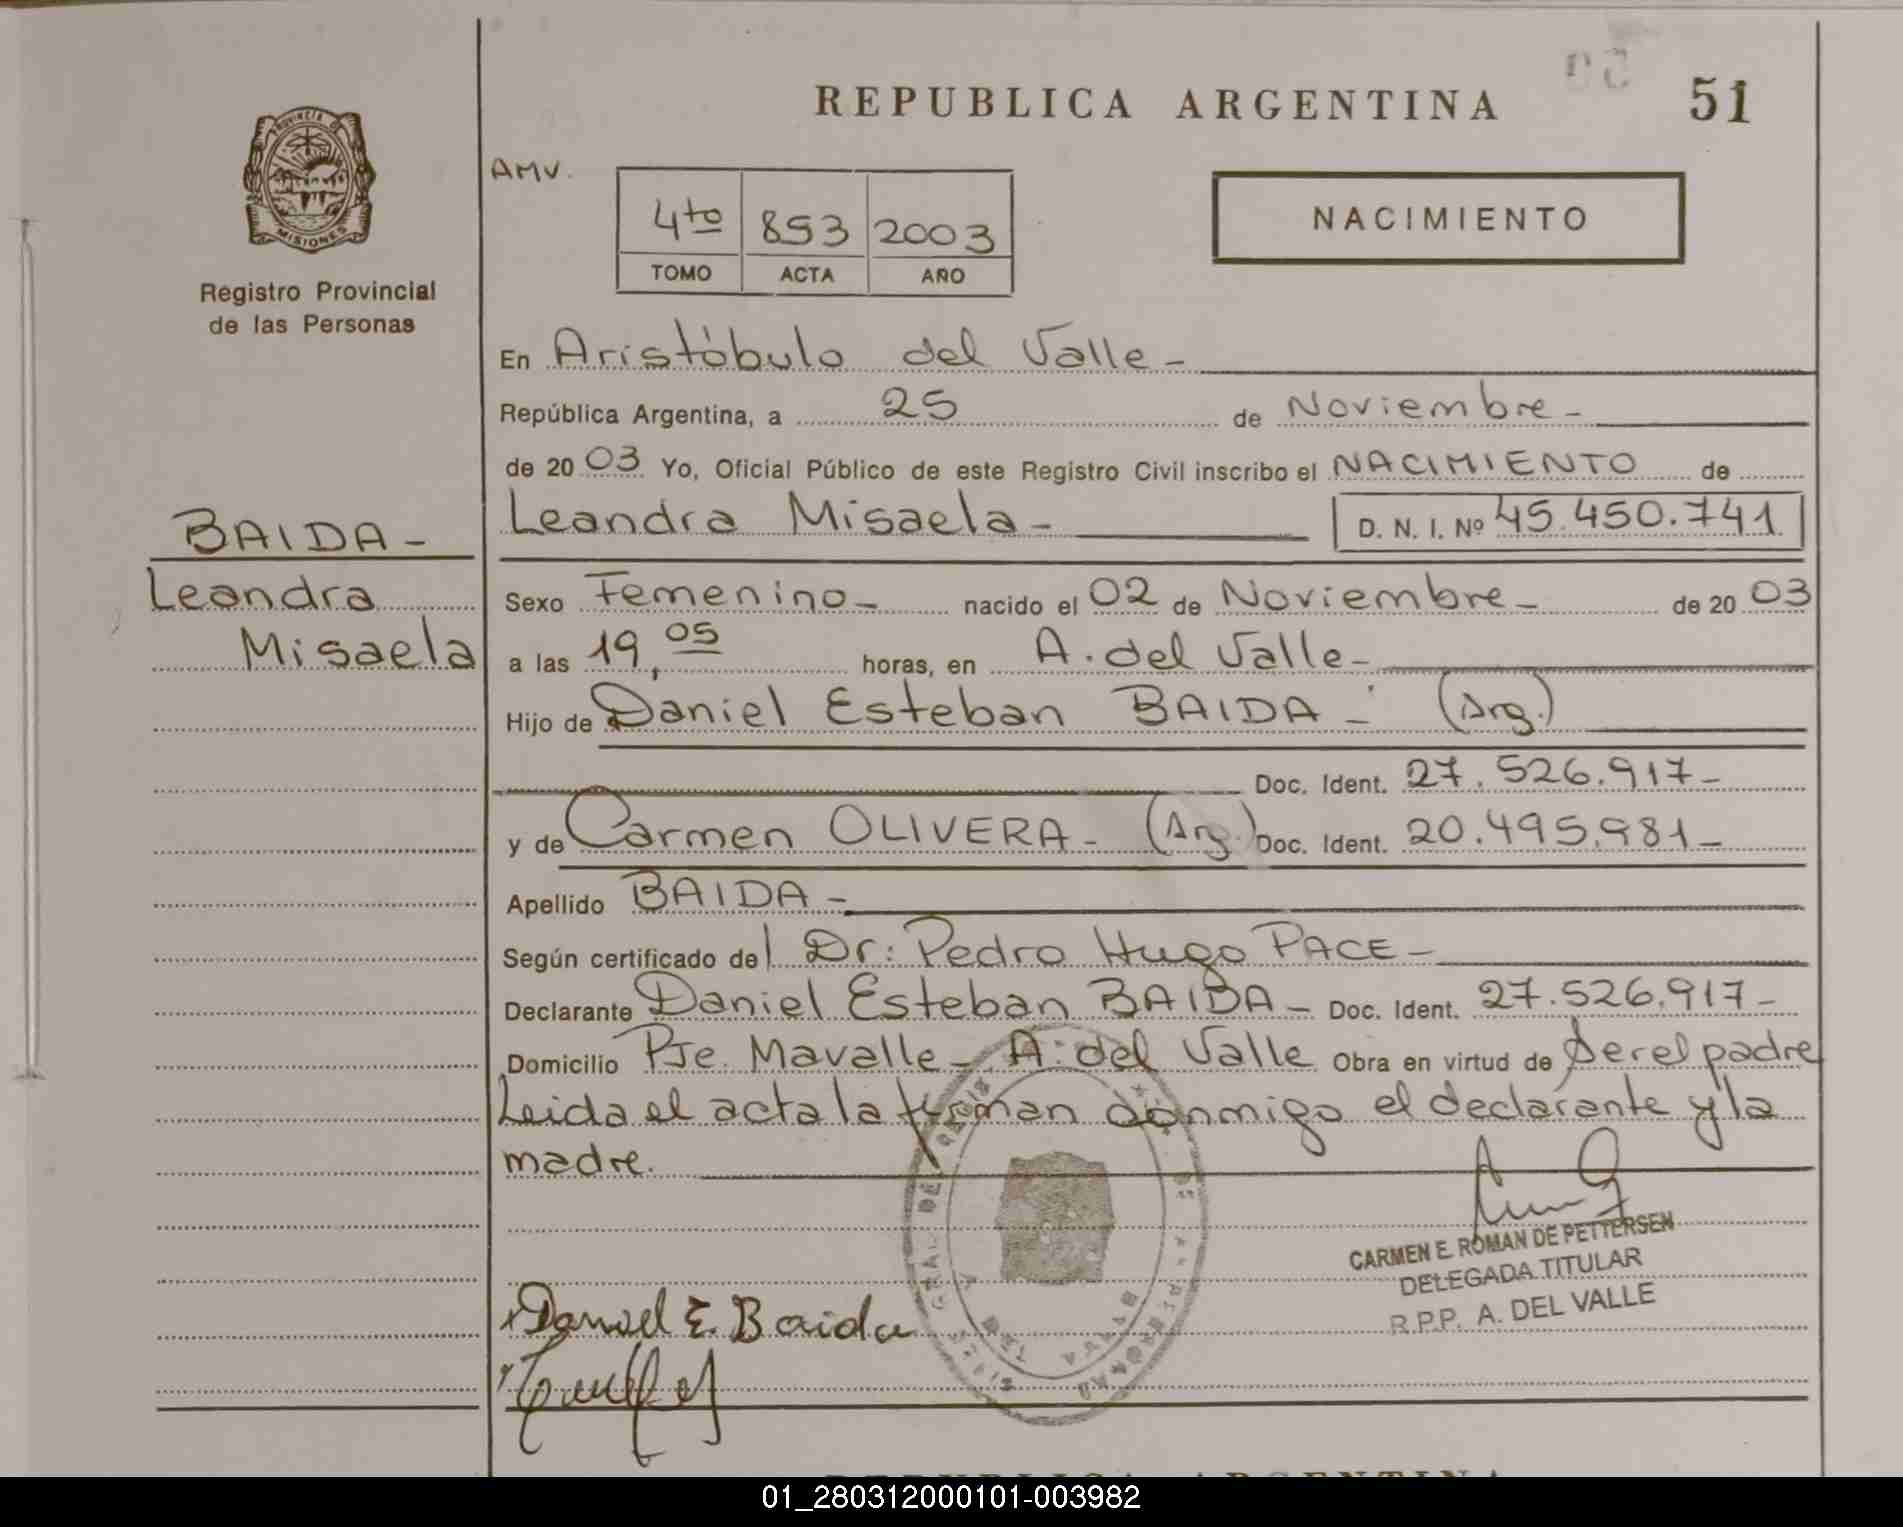 REPUBLICA ARGENTINA
51
PROVINCIA DE
MISIONES
Registro Provincial
de las Personas
AMV.
4to 853 2003
TOMO ACTA AÑO
NACIMIENTO
En Aristóbulo del Valle -
República Argentina, a 25 de Noviembre -
de 20 03 Yo, Oficial Público de este Registro Civil inscribo el NACIMIENTO de
BAIDA -
Leandra
Misaela
Leandra Misaela - D. N. I. Nº 45.450.741
Sexo Femenino - nacido el 02 de Noviembre - de 20 03
a las 19,05 horas, en A. del Valle -
Hijo de Daniel Esteban BAIDA - (Arg.)
Doc. Ident. 27.526.917 -
y de Carmen OLIVERA - (Arg.) Doc. Ident. 20.495.981 -
Apellido BAIDA -
Según certificado del Dr: Pedro Hugo PACE -
Declarante Daniel Esteban BAIDA - Doc. Ident. 27.526.917 -
Domicilio Pje. Mavalle - A. del Valle Obra en virtud de ser el padre
Leida el acta la firman conmigo el declarante y la
madre.
CARMEN E. ROMAN DE PETTERSEN
DELEGADA TITULAR
R.P.P. A. DEL VALLE
Daniel E. Baida
REPUBLICA ARGENTINA
01_280312000101-003982